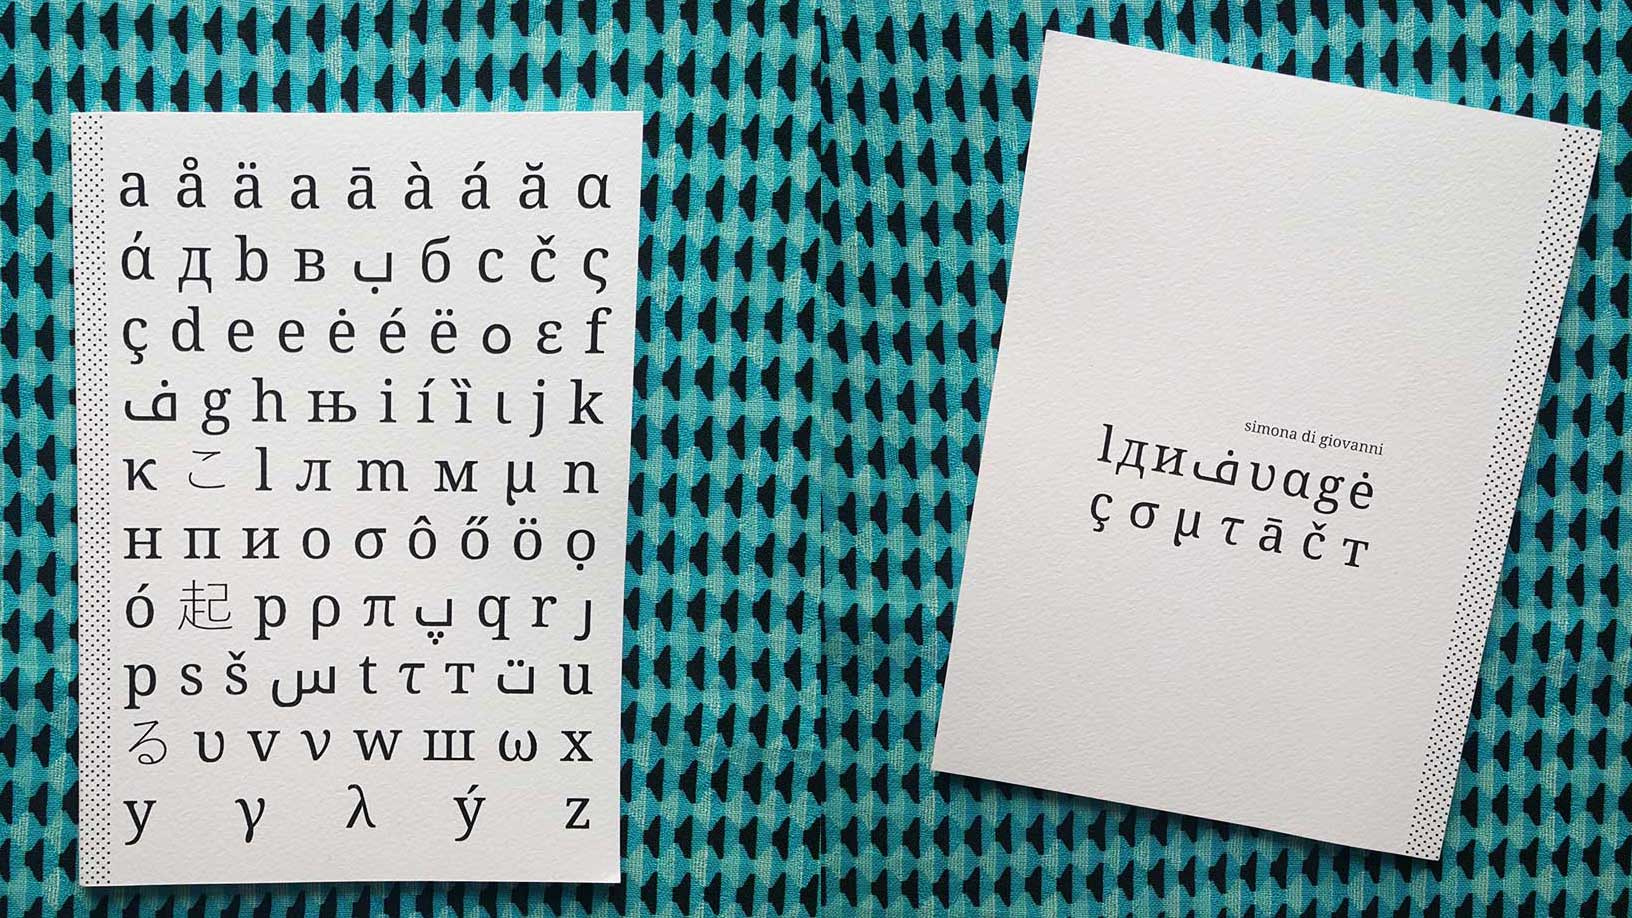 a å ä a ā à á ă α
ά д b в ب б c č ς
ç d e e ė é ë ο ε f
ف g h њ i í ȉ ι j k
к こ l л m м μ n
н п и o σ ô ő ö ọ
ó 起 p ρ π پ q r ȷ
р s š س t τ т ت u
る υ v ν w ш ω x
y γ λ ý z
simona di giovanni
lдифυαgė
ç σ μ τ ā č т